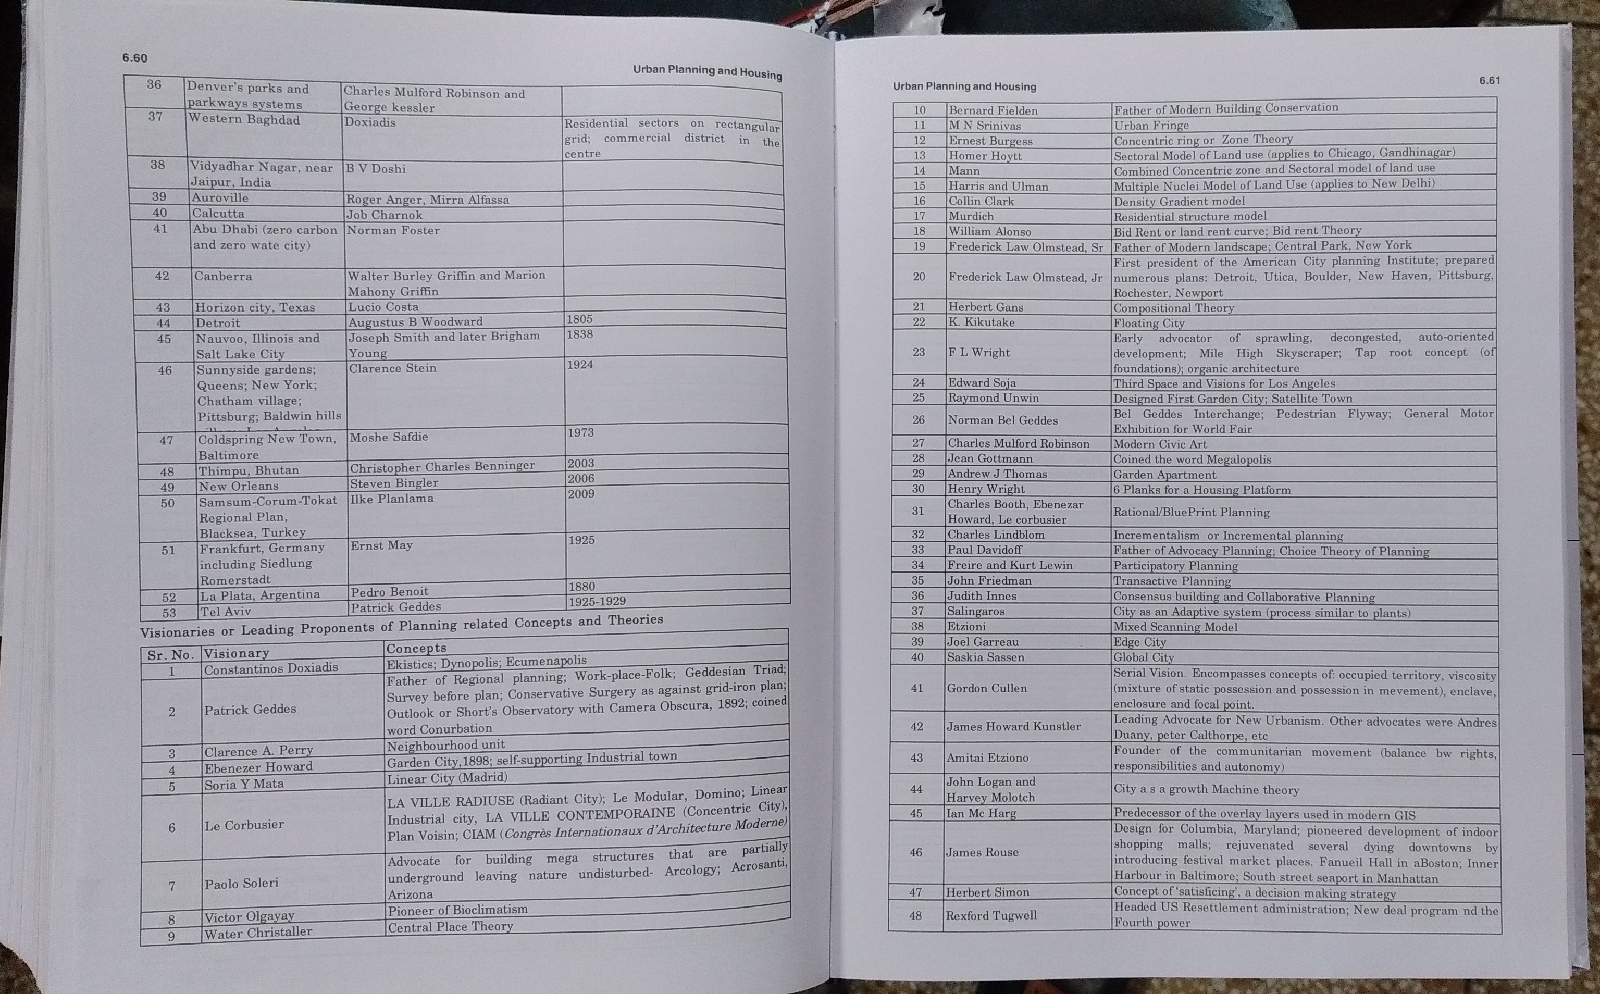 6.60
Urban Planning and Housing
36 Denver's parks and Charles Mulford Robinson and
parkways systems George kessler
37 Western Baghdad Doxiadis Residential sectors on rectangular
grid; commercial district in the
centre
38 Vidyadhar Nagar, near B V Doshi
Jaipur, India
39 Auroville Roger Anger, Mirra Alfassa
40 Calcutta Job Charnok
41 Abu Dhabi (zero carbon Norman Foster
and zero wate city)
42 Canberra Walter Burley Griffin and Marion
Mahony Griffin
43 Horizon city, Texas Lucio Costa
44 Detroit Augustus B Woodward 1805
45 Nauvoo, Illinois and Joseph Smith and later Brigham 1838
Salt Lake City Young
46 Sunnyside gardens; Clarence Stein 1924
Queens; New York;
Chatham village;
Pittsburg; Baldwin hills
47 Coldspring New Town, Moshe Safdie 1973
Baltimore
48 Thimpu, Bhutan Christopher Charles Benninger 2003
49 New Orleans Steven Bingler 2006
50 Samsum-Corum-Tokat Ilke Planlama 2009
Regional Plan,
Blacksea, Turkey
51 Frankfurt, Germany Ernst May 1925
including Siedlung
Romerstadt
52 La Plata, Argentina Pedro Benoit 1880
53 Tel Aviv Patrick Geddes 1925-1929
Visionaries or Leading Proponents of Planning related Concepts and Theories
Sr. No. Visionary Concepts
1 Constantinos Doxiadis Ekistics; Dynopolis; Ecumenapolis
Father of Regional planning; Work-place-Folk; Geddesian Triad;
Survey before plan; Conservative Surgery as against grid-iron plan;
2 Patrick Geddes Outlook or Short's Observatory with Camera Obscura, 1892; coined
word Conurbation
3 Clarence A. Perry Neighbourhood unit
4 Ebenezer Howard Garden City,1898; self-supporting Industrial town
5 Soria Y Mata Linear City (Madrid)
LA VILLE RADIUSE (Radiant City); Le Modular, Domino; Linear
6 Le Corbusier Industrial city, LA VILLE CONTEMPORAINE (Concentric City),
Plan Voisin; CIAM (Congrès Internationaux d'Architecture Moderne)
Advocate for building mega structures that are partially
7 Paolo Soleri underground leaving nature undisturbed- Arcology; Acrosanti,
Arizona
8 Victor Olgayay Pioneer of Bioclimatism
9 Water Christaller Central Place Theory
Urban Planning and Housing
6.61
10 Bernard Fielden Father of Modern Building Conservation
11 M N Srinivas Urban Fringe
12 Ernest Burgess Concentric ring or Zone Theory
13 Homer Hoytt Sectoral Model of Land use (applies to Chicago, Gandhinagar)
14 Mann Combined Concentric zone and Sectoral model of land use
15 Harris and Ulman Multiple Nuclei Model of Land Use (applies to New Delhi)
16 Collin Clark Density Gradient model
17 Murdich Residential structure model
18 William Alonso Bid Rent or land rent curve; Bid rent Theory
19 Frederick Law Olmstead, Sr Father of Modern landscape; Central Park, New York
First president of the American City planning Institute; prepared
20 Frederick Law Olmstead, Jr numerous plans: Detroit, Utica, Boulder, New Haven, Pittsburg,
Rochester, Newport
21 Herbert Gans Compositional Theory
22 K. Kikutake Floating City
Early advocator of sprawling, decongested, auto-oriented
23 F L Wright development; Mile High Skyscraper; Tap root concept (of
foundations); organic architecture
24 Edward Soja Third Space and Visions for Los Angeles
25 Raymond Unwin Designed First Garden City; Satellite Town
26 Norman Bel Geddes Bel Geddes Interchange; Pedestrian Flyway; General Motor
Exhibition for World Fair
27 Charles Mulford Robinson Modern Civic Art
28 Jean Gottmann Coined the word Megalopolis
29 Andrew J Thomas Garden Apartment
30 Henry Wright 6 Planks for a Housing Platform
31 Charles Booth, Ebenezar Rational/BluePrint Planning
Howard, Le corbusier
32 Charles Lindblom Incrementalism or Incremental planning
33 Paul Davidoff Father of Advocacy Planning; Choice Theory of Planning
34 Freire and Kurt Lewin Participatory Planning
35 John Friedman Transactive Planning
36 Judith Innes Consensus building and Collaborative Planning
37 Salingaros City as an Adaptive system (process similar to plants)
38 Etzioni Mixed Scanning Model
39 Joel Garreau Edge City
40 Saskia Sassen Global City
Serial Vision. Encompasses concepts of: occupied territory, viscosity
41 Gordon Cullen (mixture of static possession and possession in mevement), enclave,
enclosure and focal point.
42 James Howard Kunstler Leading Advocate for New Urbanism. Other advocates were Andres
Duany, peter Calthorpe, etc
43 Amitai Etziono Founder of the communitarian movement (balance bw rights,
responsibilities and autonomy)
44 John Logan and City a s a growth Machine theory
Harvey Molotch
45 Ian Mc Harg Predecessor of the overlay layers used in modern GIS
Design for Columbia, Maryland; pioneered development of indoor
46 James Rouse shopping malls; rejuvenated several dying downtowns by
introducing festival market places, Fanueil Hall in aBoston; Inner
Harbour in Baltimore; South street seaport in Manhattan
47 Herbert Simon Concept of 'satisficing', a decision making strategy
48 Rexford Tugwell Headed US Resettlement administration; New deal program nd the
Fourth power